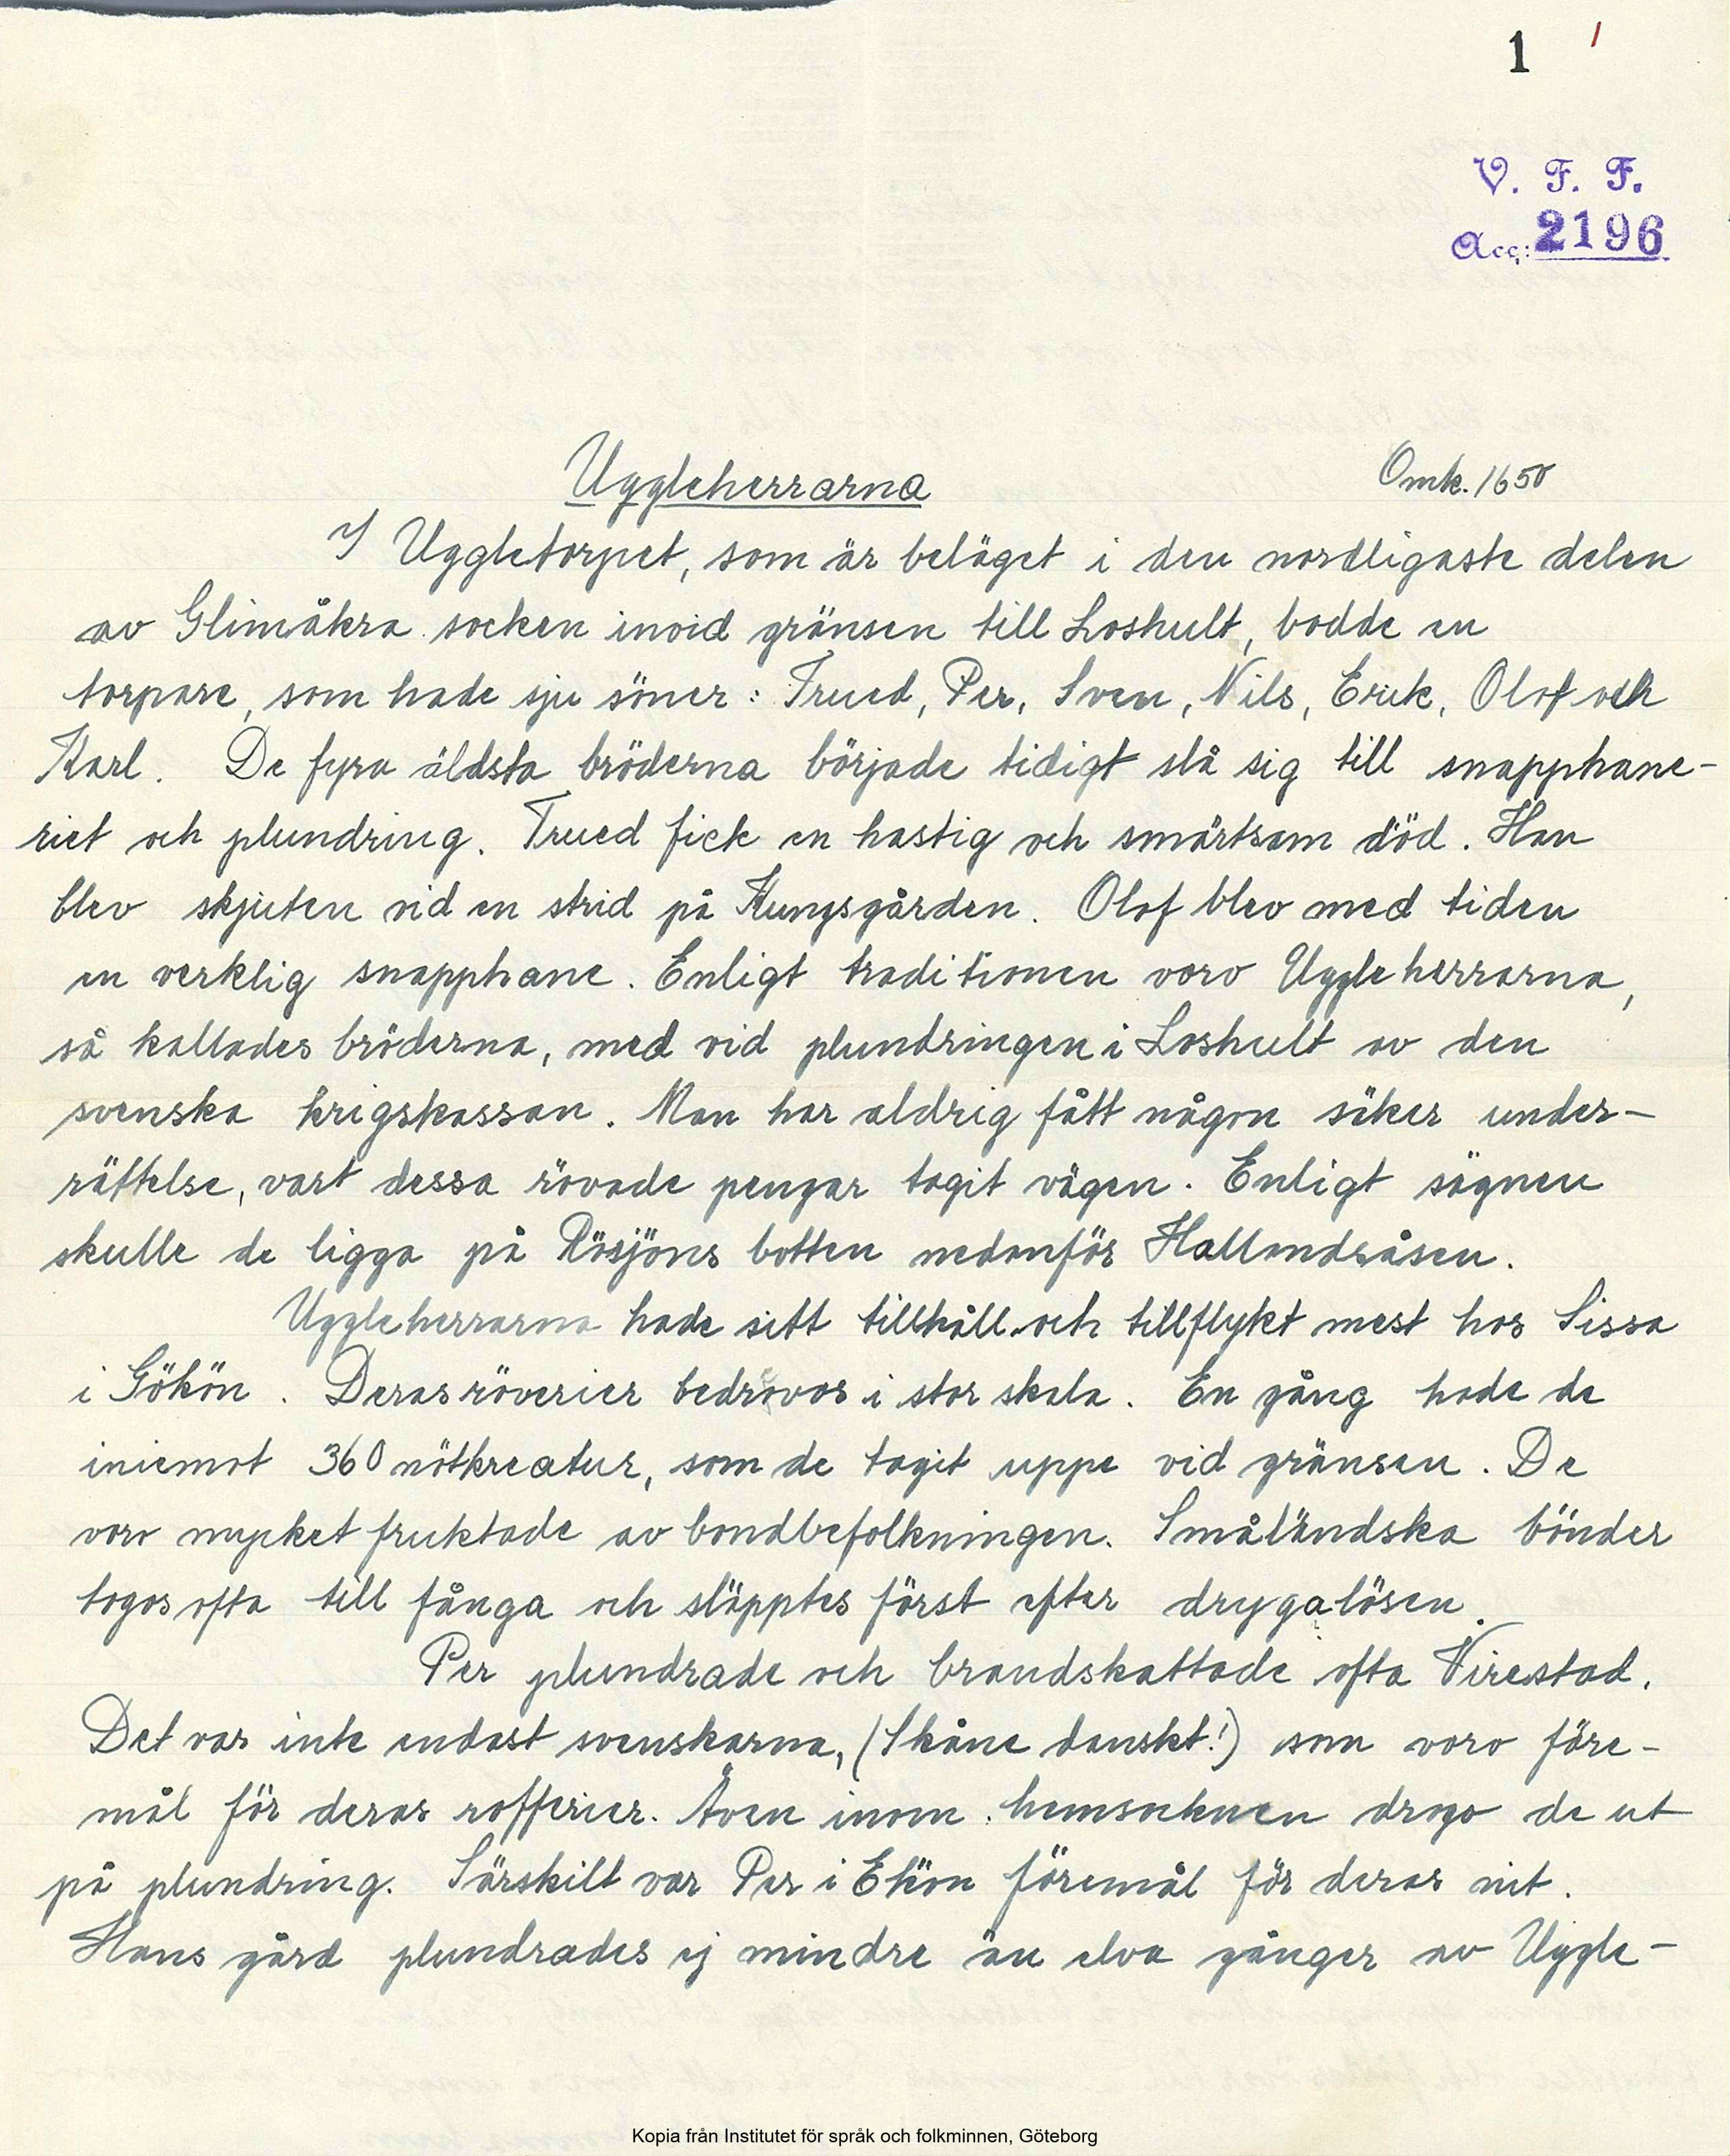 1 /
V. F. F.
Acc: 2196
Uggleherrarna Omk. 1650
I Uggletorpet, som är beläget i den nordligaste delen
av Glimåkra socken invid gränsen till Loshult, bodde en
torpare, som hade sju söner: Trued, Per, Sven, Nils, Erik, Olof och
Karl. De fyra äldsta bröderna började tidigt slå sig till snapphane-
riet och plundring. Trued fick en hastig och smärtsam död. Han
blev skjuten vid en strid på Kungsgården. Olof blev med tiden
en verklig snapphane. Enligt traditionen voro Uggleherrarna,
så kallades bröderna, med vid plundringen i Loshult av den
svenska krigskassan. Man har aldrig fått någon säker under-
rättelse, vart dessa rövade pengar tagit vägen. Enligt sägnen
skulle de ligga på Rösjöns botten nedanför Hallandsåsen.
Uggleherrarna hade sitt tillhåll och tillflykt mest hos Sissa
i Gökön. Deras röverier bedrevos i stor skala. En gång hade de
iniemot 360 nötkreatur, som de tagit uppe vid gränsen. De
voro mycket fruktade av bondbefolkningen. Småländska bönder
togos ofta till fånga och släpptes först efter dryga lösen.
Per plundrade och brandskattade ofta Virestad.
Det var inte endast svenskarna, (Skåne danskt!) som voro före-
mål för deras rofferier. Även inom hemsocknen drogo de ut
på plundring. Särskilt var Per i Ekön föremål för deras nit.
Hans gård plundrades ej mindre än elva gånger av Uggle-
Kopia från Institutet för språk och folkminnen, Göteborg